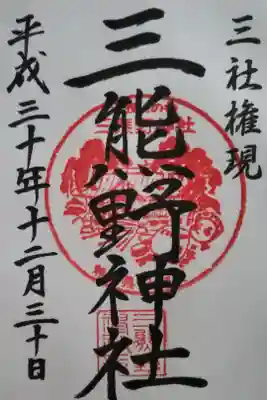 三社権現
三熊野神社
平成三十年十二月三十日